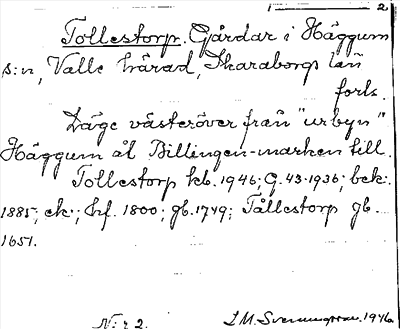 2
Tollestorp. Gårdar i Häggum
s:n, Valle härad, Skaraborgs län
forts.
Läge västeröver från "urbyn"
Häggum åt Billingen-marken till.
Tollestorp kb. 1946; G. 43-1936; bek.
1885; ek.; hf. 1800; gb. 1749; Tållestorp gb.
1651.
N:r 2. I. M. Svennungsson. 1946